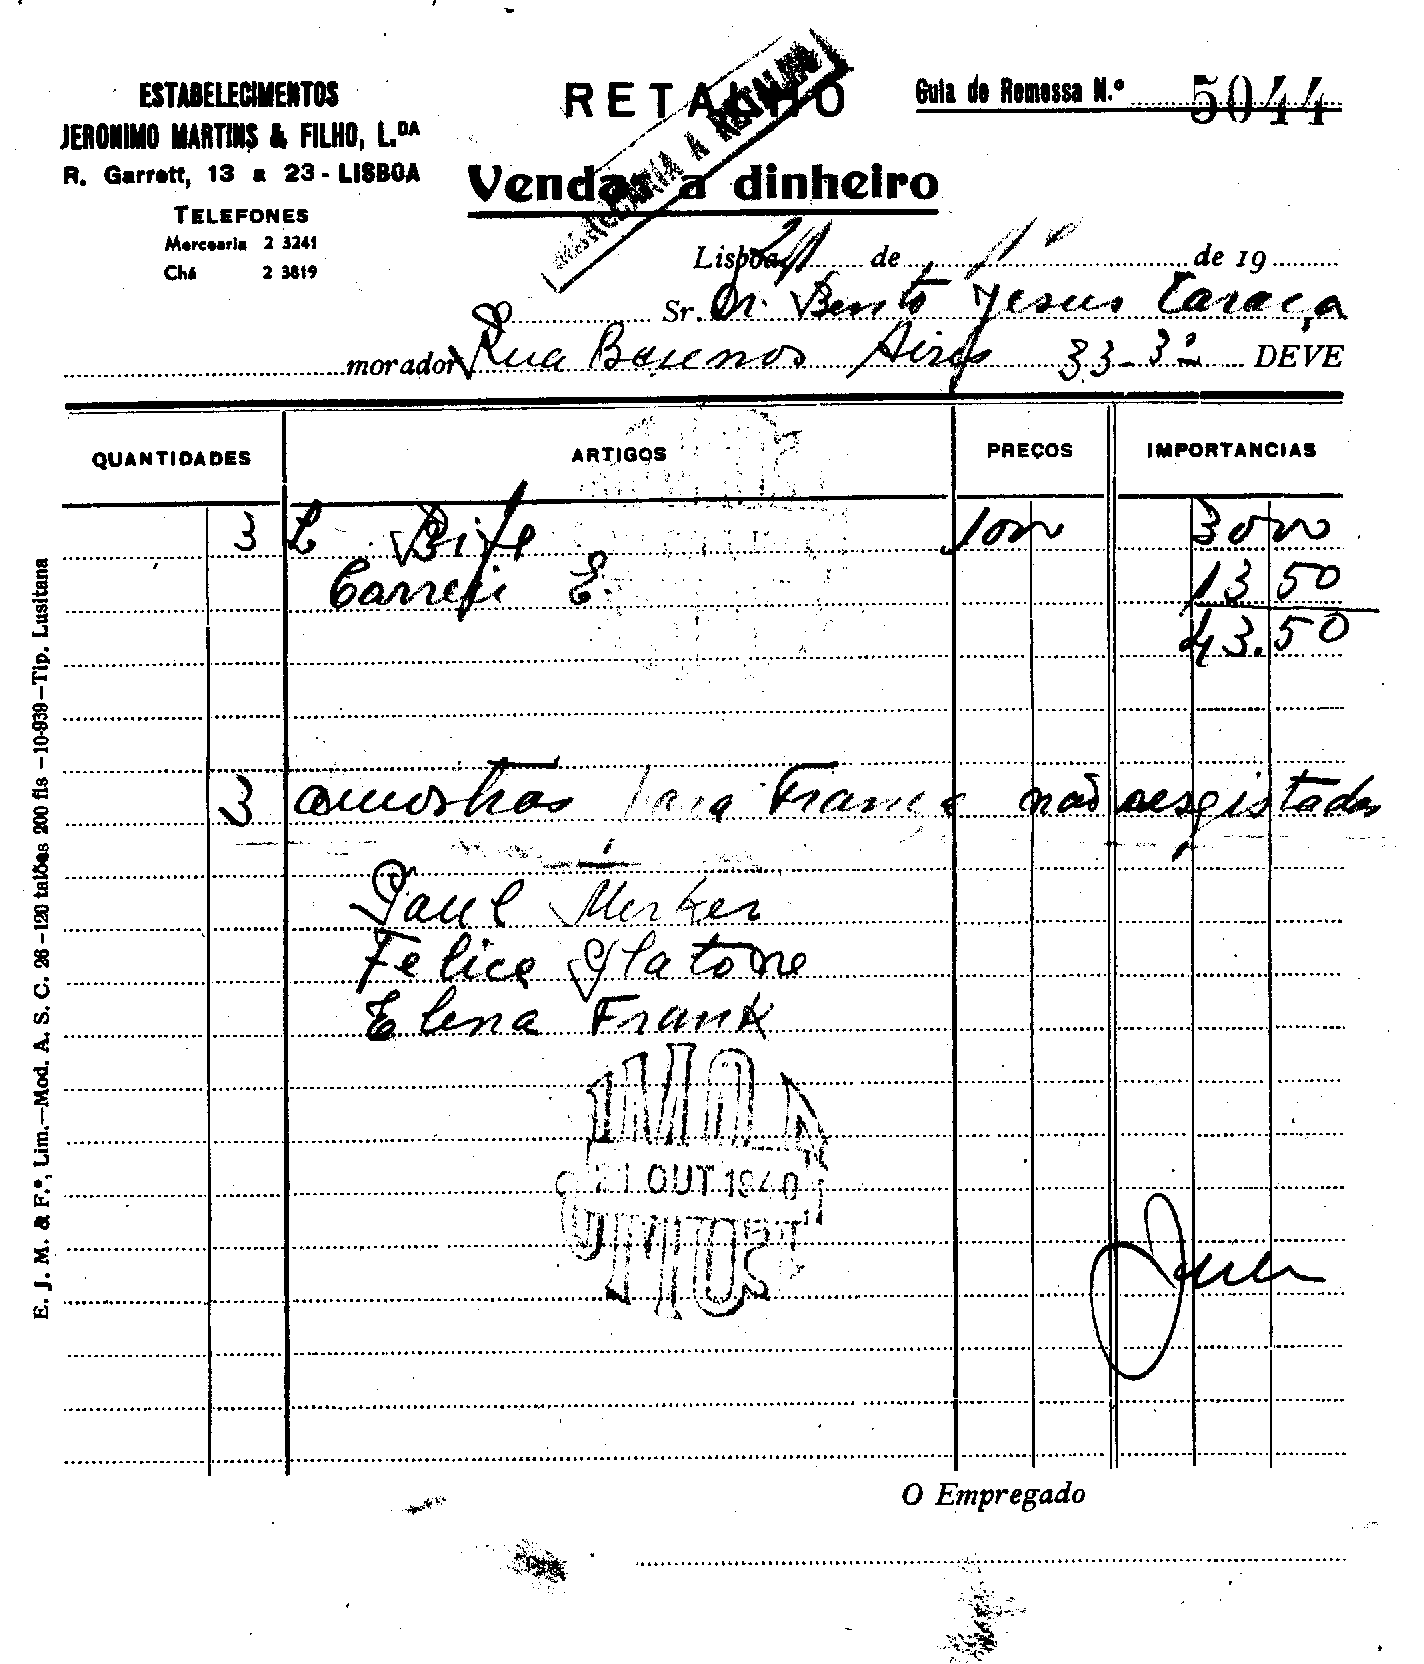 ESTABELECIMENTOS
JERONIMO MARTINS & FILHO, L.DA
R. Garrett, 13 a 23 - LISBOA
TELEFONES
Mercearia 2 3241
Chá 2 3819
RETALHO
Vendas a dinheiro
MERCEARIA A RETALHO
Guia de Remessa N.º 5044
Lisboa, 21 de de 19
Sr. Dr. Bento Jesus Caraça
morador Rua Buenos Aires 33-3º DEVE
QUANTIDADES ARTIGOS PREÇOS IMPORTANCIAS
3 10 00 30 00
13 50
43.50
3 amostras para França não resgistadas
Paul Merker
Felice Platone
Elena Frank
21 OUT 1940
O Empregado
E. J. M. & F.º, Lim.—Mod. A. S. C. 26—120 talões 200 fls —10-939—Tip. Lusitana